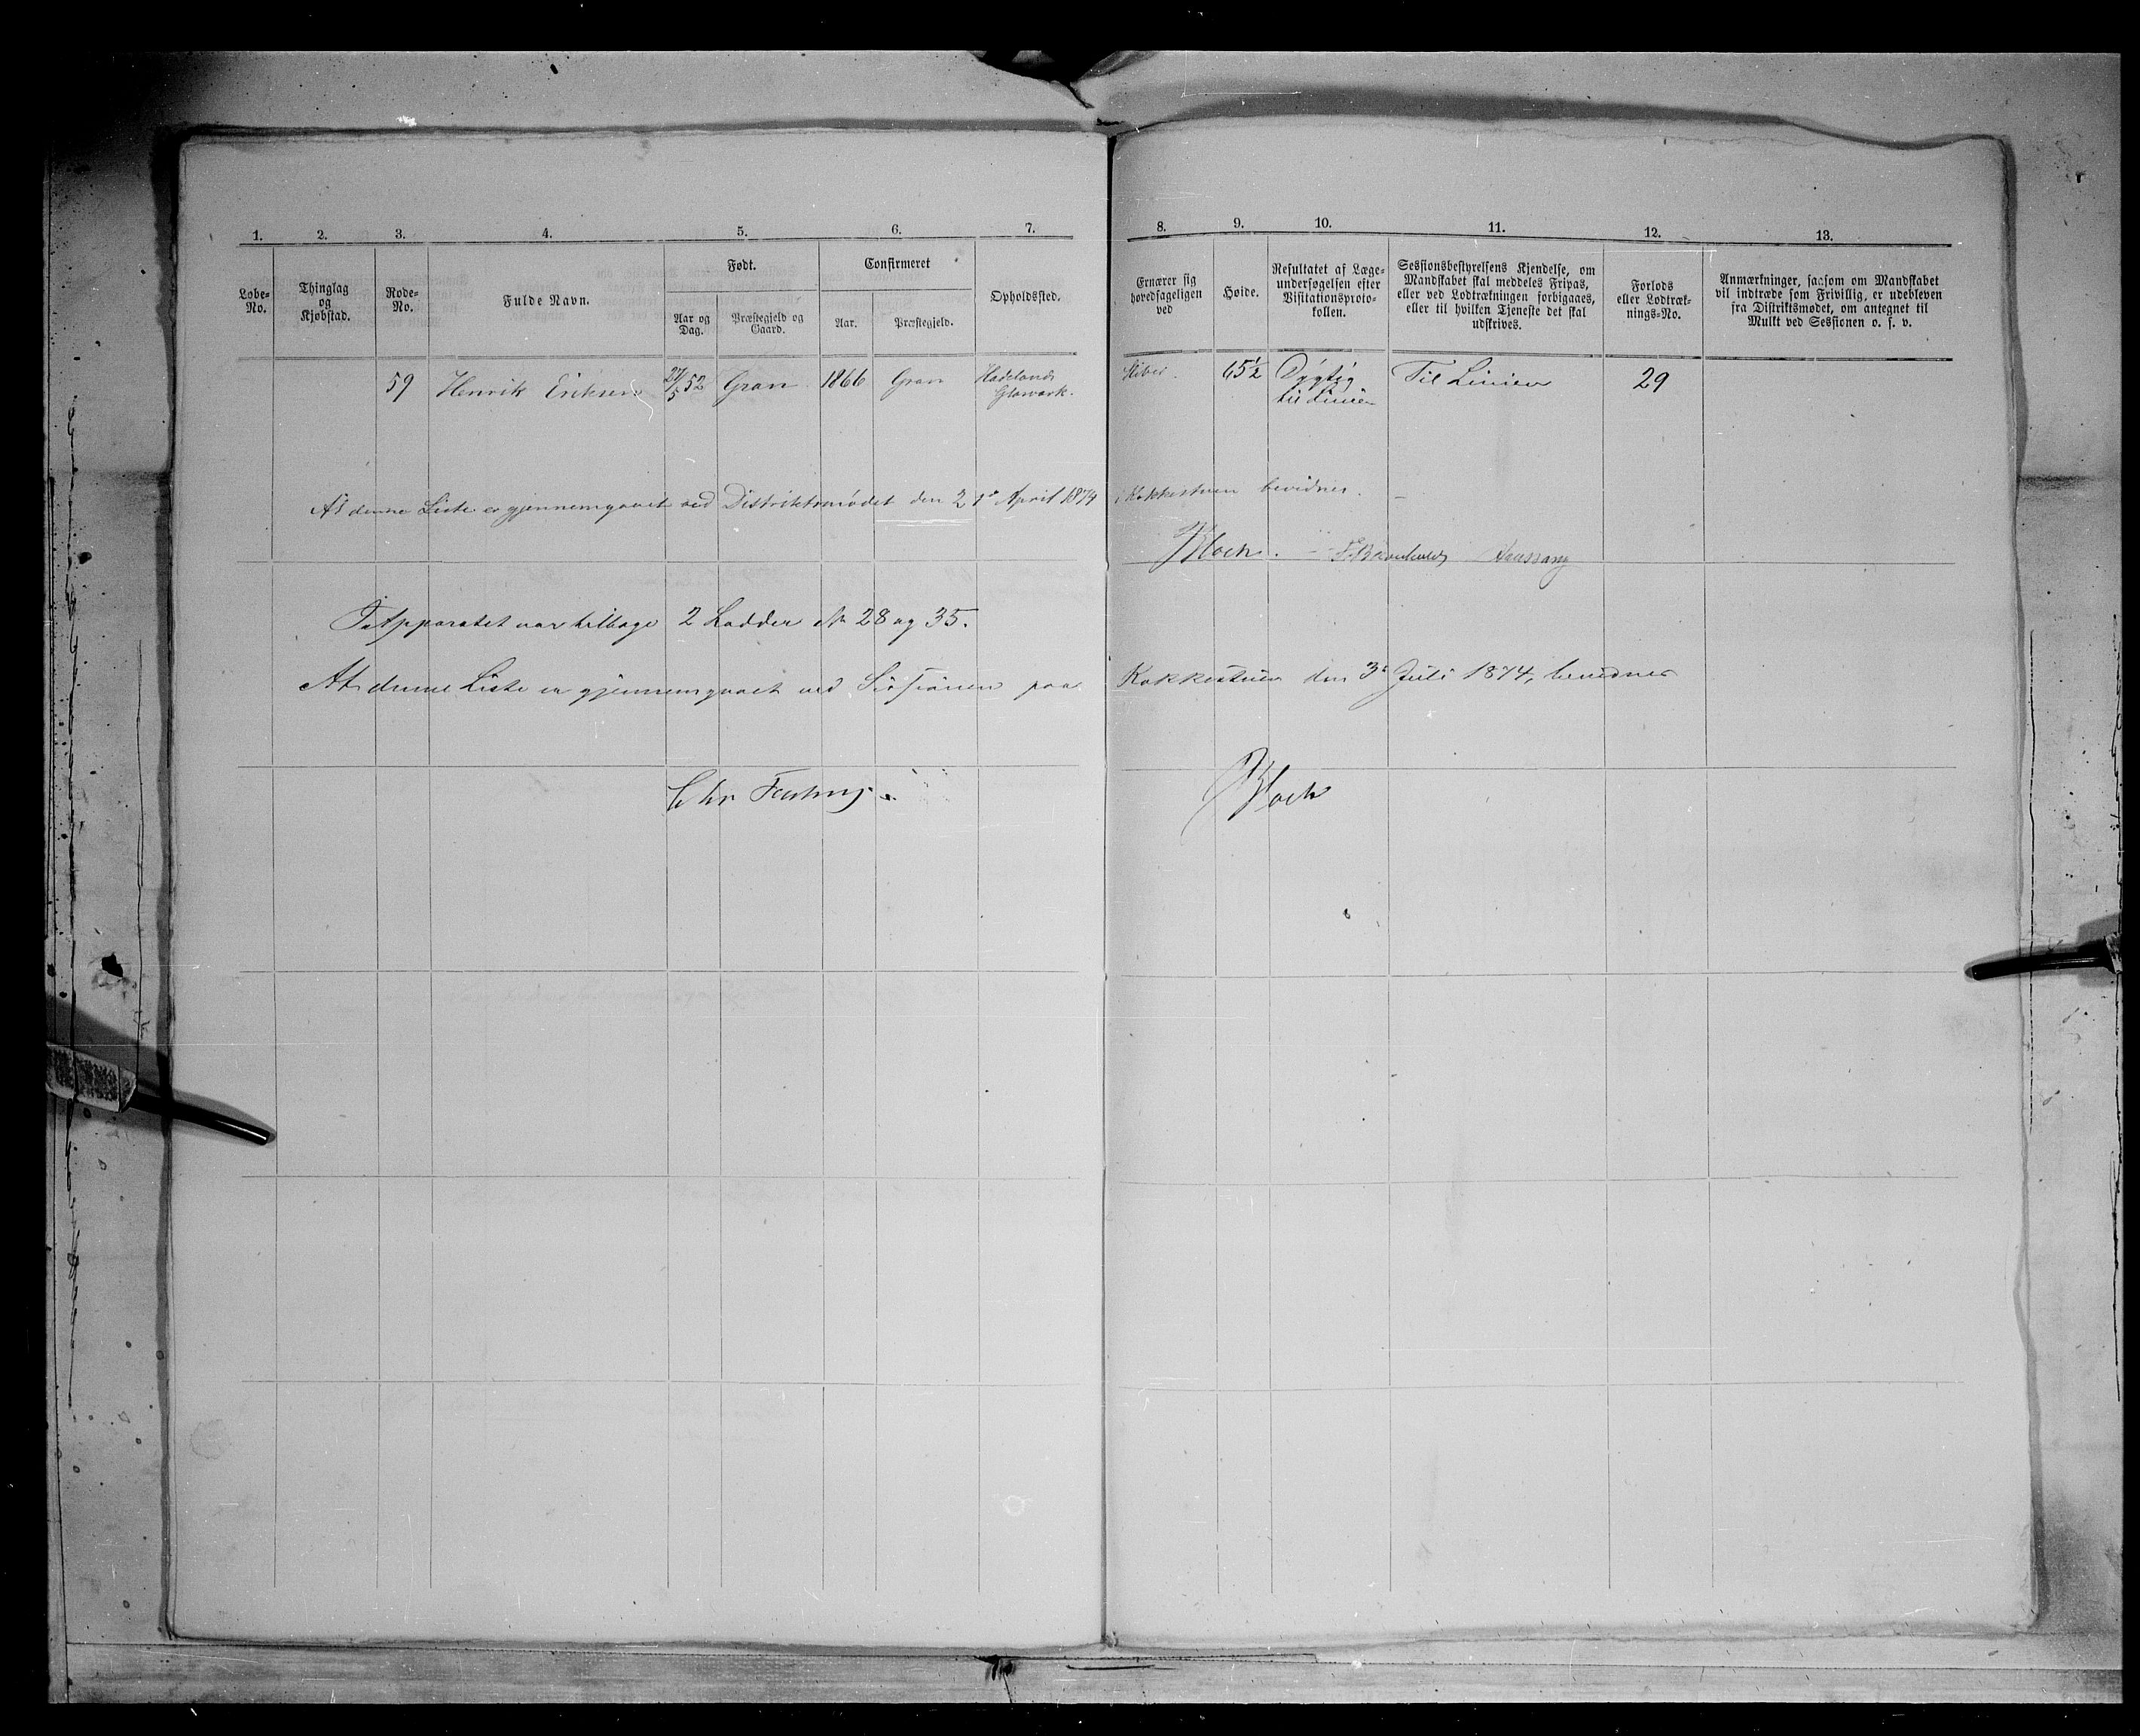 1. 2. 3. 4. 5. 6. 7. 8. 9. 10. 11. 12. 13.
Løbe-No.
Thinglag og Kjøbstad.
Rode-No.
Fulde Navn.
Født.
Aar og Dag.
Præstegjeld og Gaard.
Confirmeret
Aar.
Præstegjeld.
Opholdssted.
Ernærer sig hovedsageligen ved
Høide.
Resultatet af Læge-undersøgelsen efter Visitationsproto-kollen.
Sessionsbestyrelsens Kjendelse, om Mandskabet skal meddeles Fripas, eller ved Lodtrækningen forbigaaes, eller til hvilken Tjeneste det skal udskrives.
Forlods eller Lodtræk-nings-No.
Anmærkninger, saasom om Mandskabet vil indtræde som Frivillig, er udebleven fra Distriktsmødet, om antegnet til Mulkt ved Sessionen o. s. v.
59 Henrik Eriksen 27/5 52 Gran 1866 Gran Hadelands Glasværk. Sliber. 65½ Dygtig til Linien Til Linien 29
At denne Liste er gjennemgaaet ved Distriktsmødet den 21de April 1874 i Kokkestuen bevidnes.
Bloch.
I Apparatet var tilbage 2 Lodder No 28 og 35.
At denne Liste er gjennemgaaet ved Sessionen paa Kokkestuen den 3de Juli 1874, bevidnes
Chr Fasting. Bloch